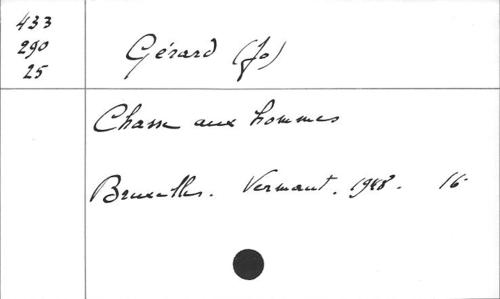 433
290
25
Gérard (Jo)
Chasse aux hommes
Bruxelles. Vermaut. 1948. 16-